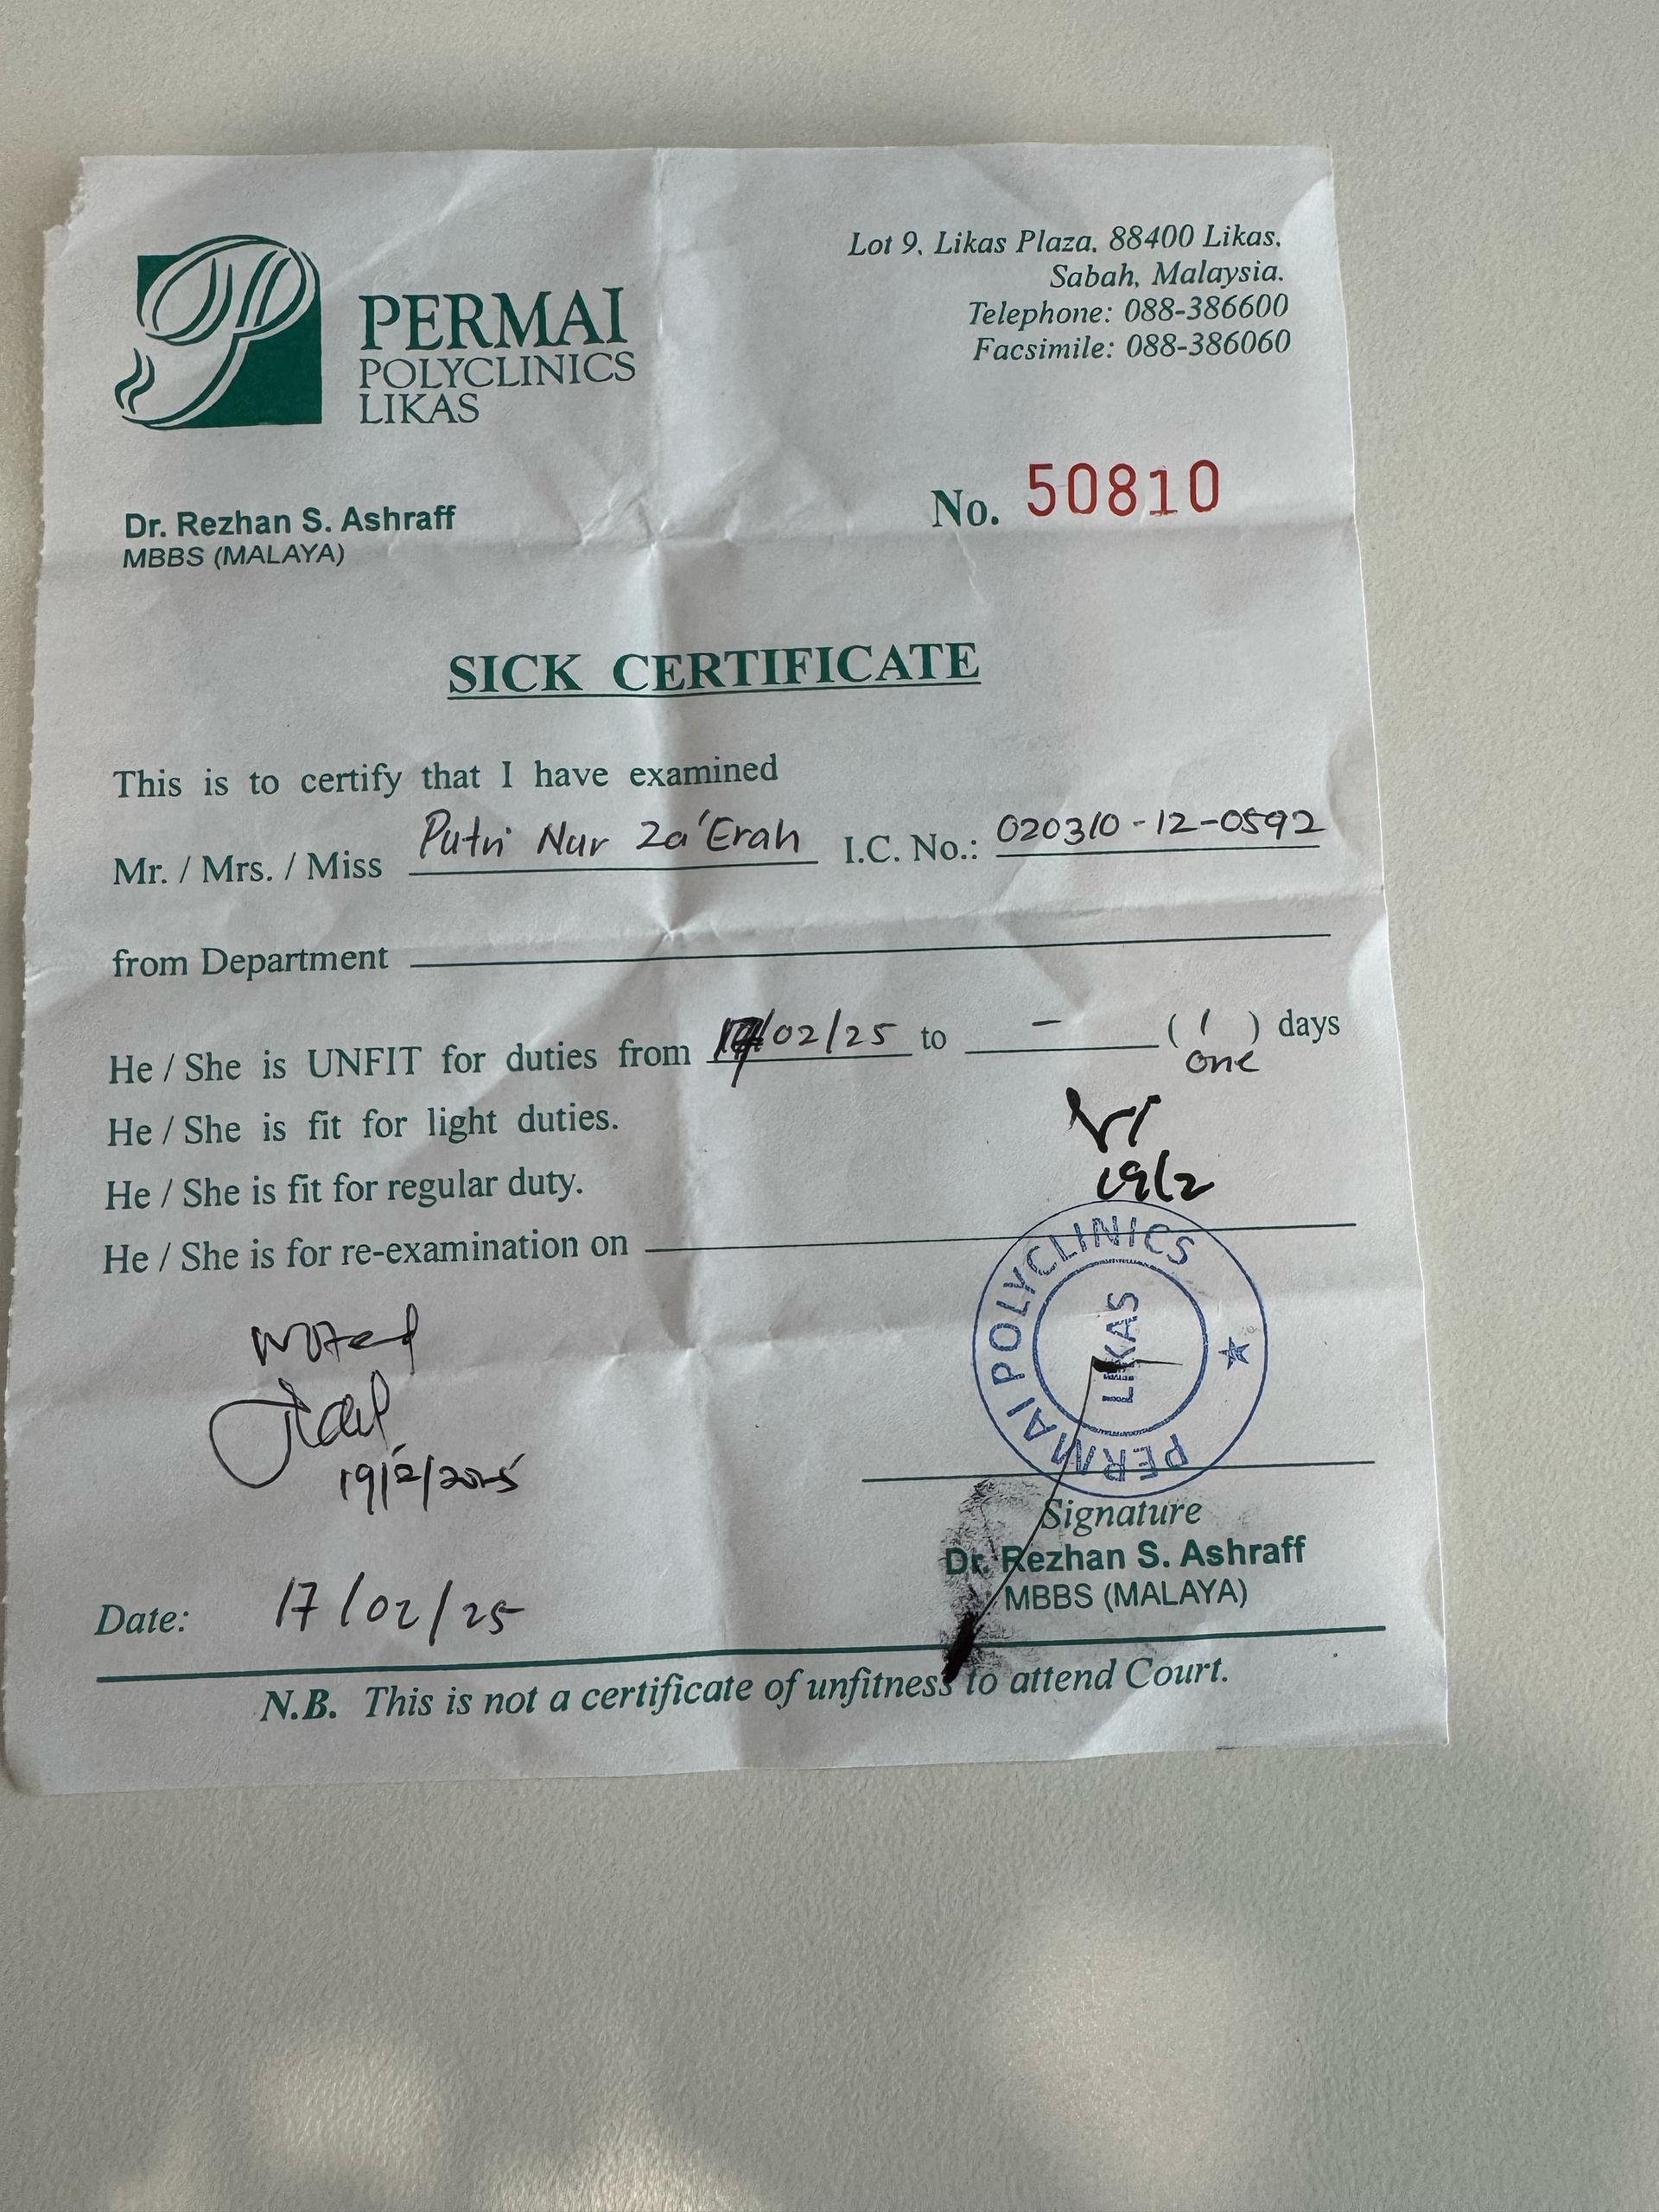 PERMAI
POLYCLINICS
LIKAS
Lot 9, Likas Plaza, 88400 Likas,
Sabah, Malaysia.
Telephone: 088-386600
Facsimile: 088-386060
Dr. Rezhan S. Ashraff
MBBS (MALAYA)
No. 50810
SICK CERTIFICATE
This is to certify that I have examined
Mr. / Mrs. / Miss Putri Nur Za'Erah I.C. No.: 020310-12-0592
from Department
He / She is UNFIT for duties from /02/25 to - ( 1 ) days
one
He / She is fit for light duties.
He / She is fit for regular duty.
19/2
He / She is for re-examination on
PERMAI POLYCLINICS
LIKAS
Noted
19/2/2025
Signature
Dr. Rezhan S. Ashraff
MBBS (MALAYA)
Date: 17/02/25
N.B. This is not a certificate of unfitness to attend Court.